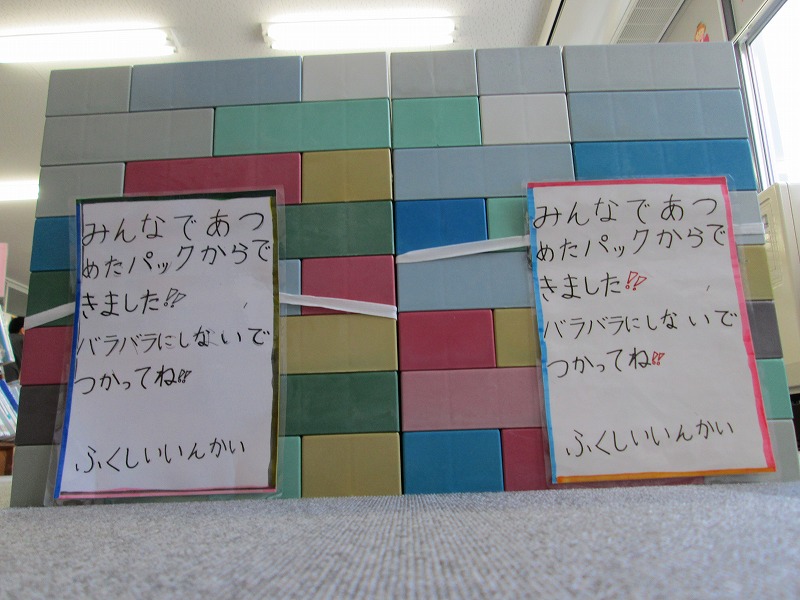 みんなであつ
めたパックからで
きました!!
バラバラにしないで
つかってね!!
ふくしいいんかい
みんなであつ
めたパックからで
きました!!
バラバラにしないで
つかってね!!
ふくしいいんかい